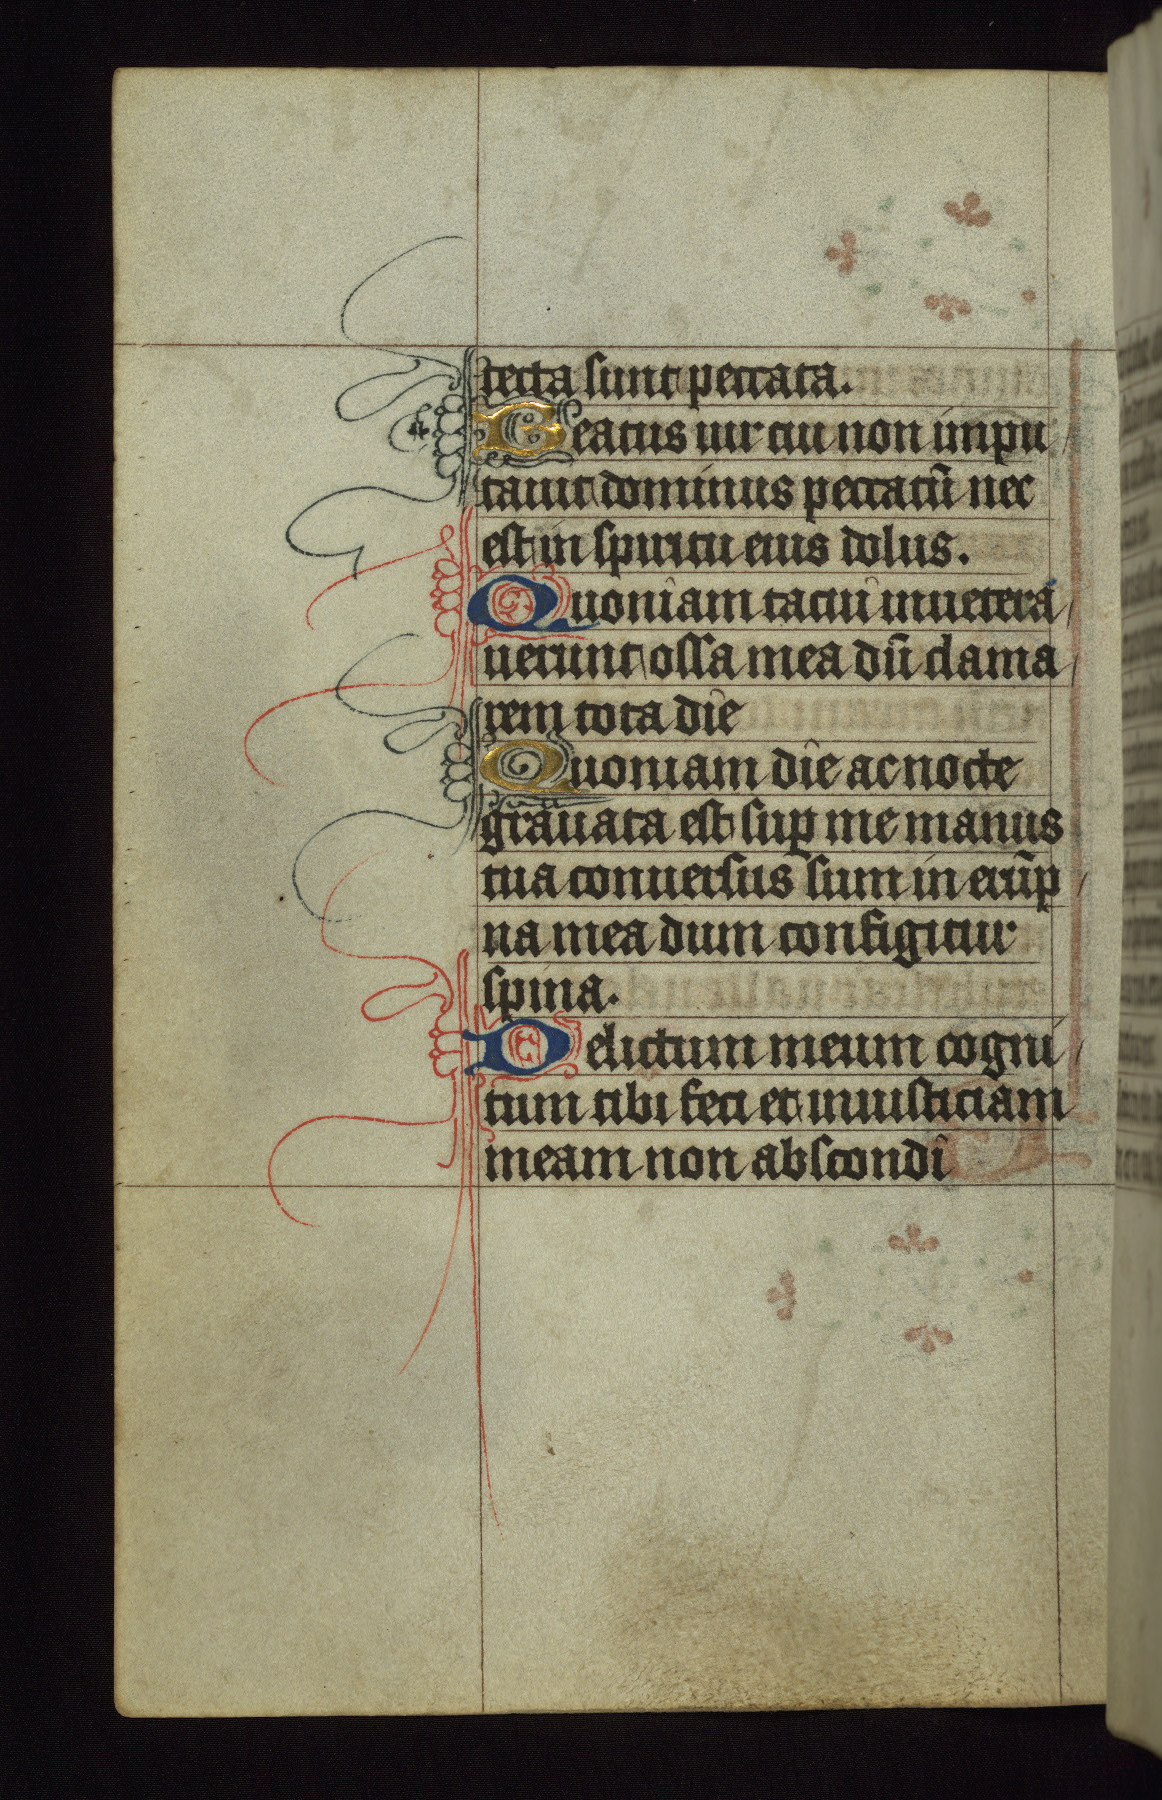 tecta sunt peccata.
Beatus uir cui non inpu
tauit dominus peccatū nec
est in spiritu eius dolus.
Quoniam tacui inuetera
uerunt ossa mea dū clama
rem tota die
Quoniam die ac nocte
grauata est sup me manus
tua conuersus sum in erūp
na mea dum configitur
spina.
Delictum meum cogni
tum tibi feci et iniusticiam
meam non abscondi